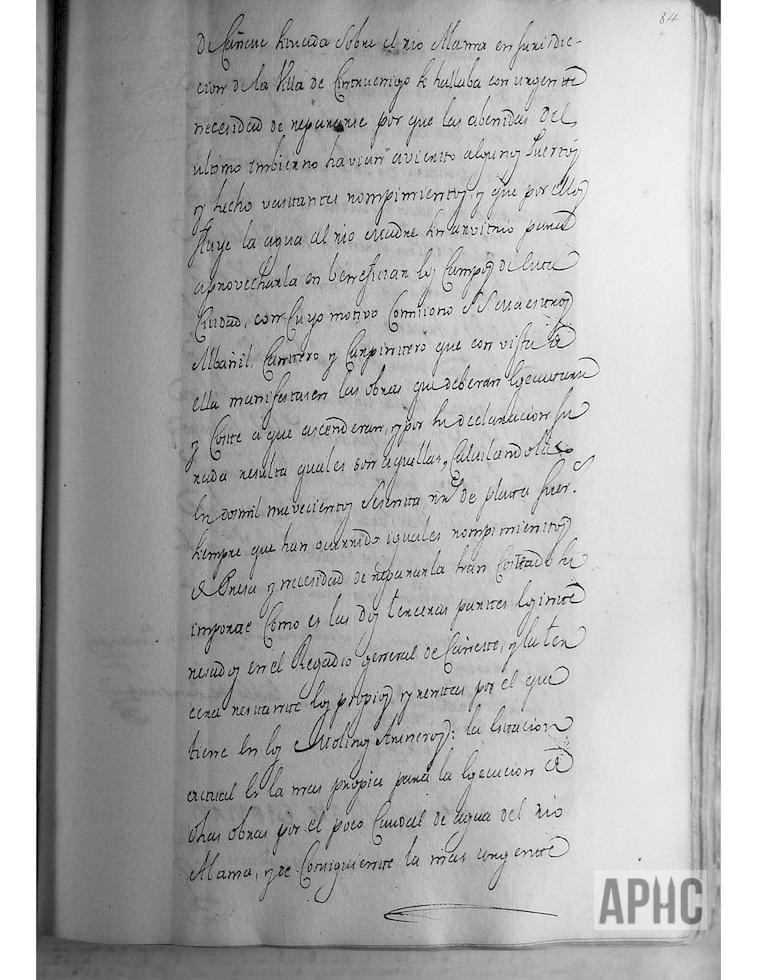 84
de Cañete hincada sobre el rio Alama en Jurisdic-
cion de la Villa de Cintruenigo se hallaba con urgente
necesidad de repararse por que las abenidas del
ultimo Imbierno havian avierto algunos Puertos
y hecho vastantes rompimientos, y que por ellos
fluye la agua al rio Madre sin arvitrio para
aprovecharla en beneficiar los Campos de esta
Ciudad, con Cuyo motivo Comisiono SS Maestros
Albañil, Cantero y Carpintero que con vista de
ella manifestasen las obras que deberan Egecutarse
y Coste a que ascenderan, y por su declaracion Ju
rada resulta quales son aquellas, Calculandolas
En dosmil nuevecientos Sesenta rrs de plata fuer.s
Siempre que han ocurrido iguales rompimientos
de Presa y necesidad de repararla han Costeado su
importe Como es las dos terceras partes los inte
resados en el Regadio general de Cañete, y la ter
cera restante los propios y rentas por el que
tiene en los Molinos Arineros: la Estacion
actual Es la mas propia para la Egecucion de
dhas obras por el poco Caudal de agua del rio
Alama, y de Consiguiente la mas urgente
APHC